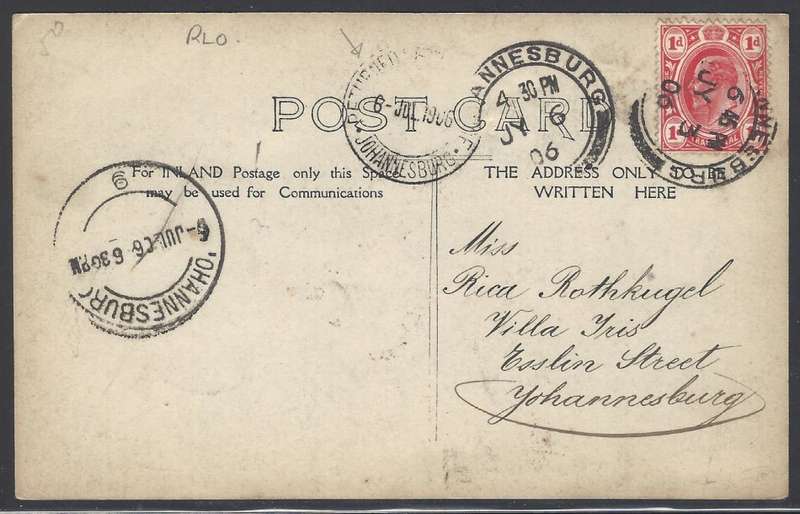 RLO.
POST CARD
For INLAND Postage only this Space
may be used for Communications
THE ADDRESS ONLY TO BE
WRITTEN HERE
Miss
Rica Rothkugel
Villa Iris
Esslin Street
Johannesburg
1d 1d
6-JUL 1906
JOHANNESBURG
ANNESBURG
4 30 PM
JY 6
06
JY 3
06
NNESBURG
6
6-JUL 06 6 30 PM
OHANNESBURG